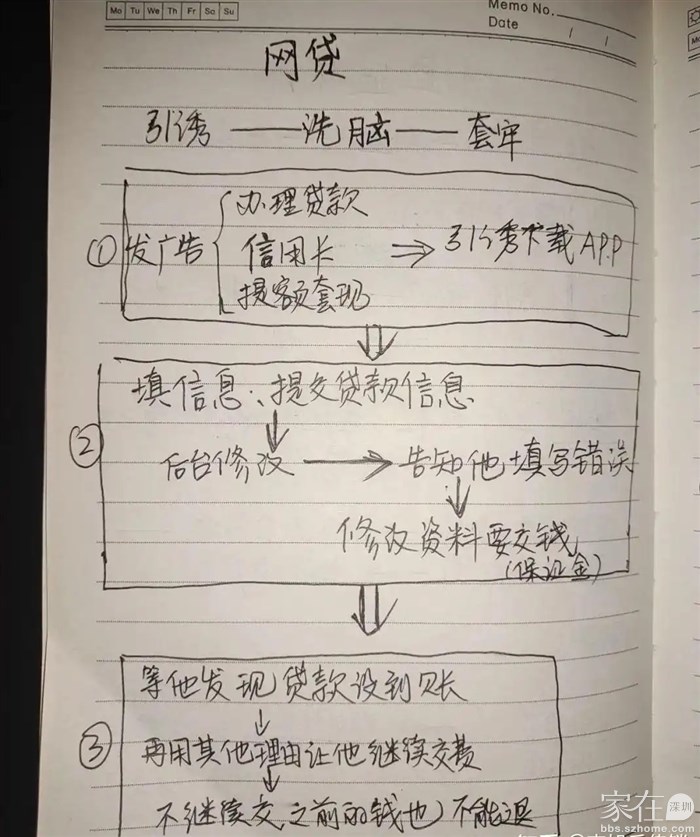 Mo Tu We Th Fr Sa Su
Memo No.
Date / /
网贷
引诱 —— 洗脑 —— 套牢
① 发广告 { 办理贷款
信用卡 ⇒ 引诱下载APP
提额套现
② 填信息、提交贷款信息
后台修改 → 告知他填写错误
修改资料要交钱
(保证金)
③ 等他发现贷款没到账
再用其他理由让他继续交费
不继续交,之前的钱也不能退
家在深圳
bbs.szhome.com